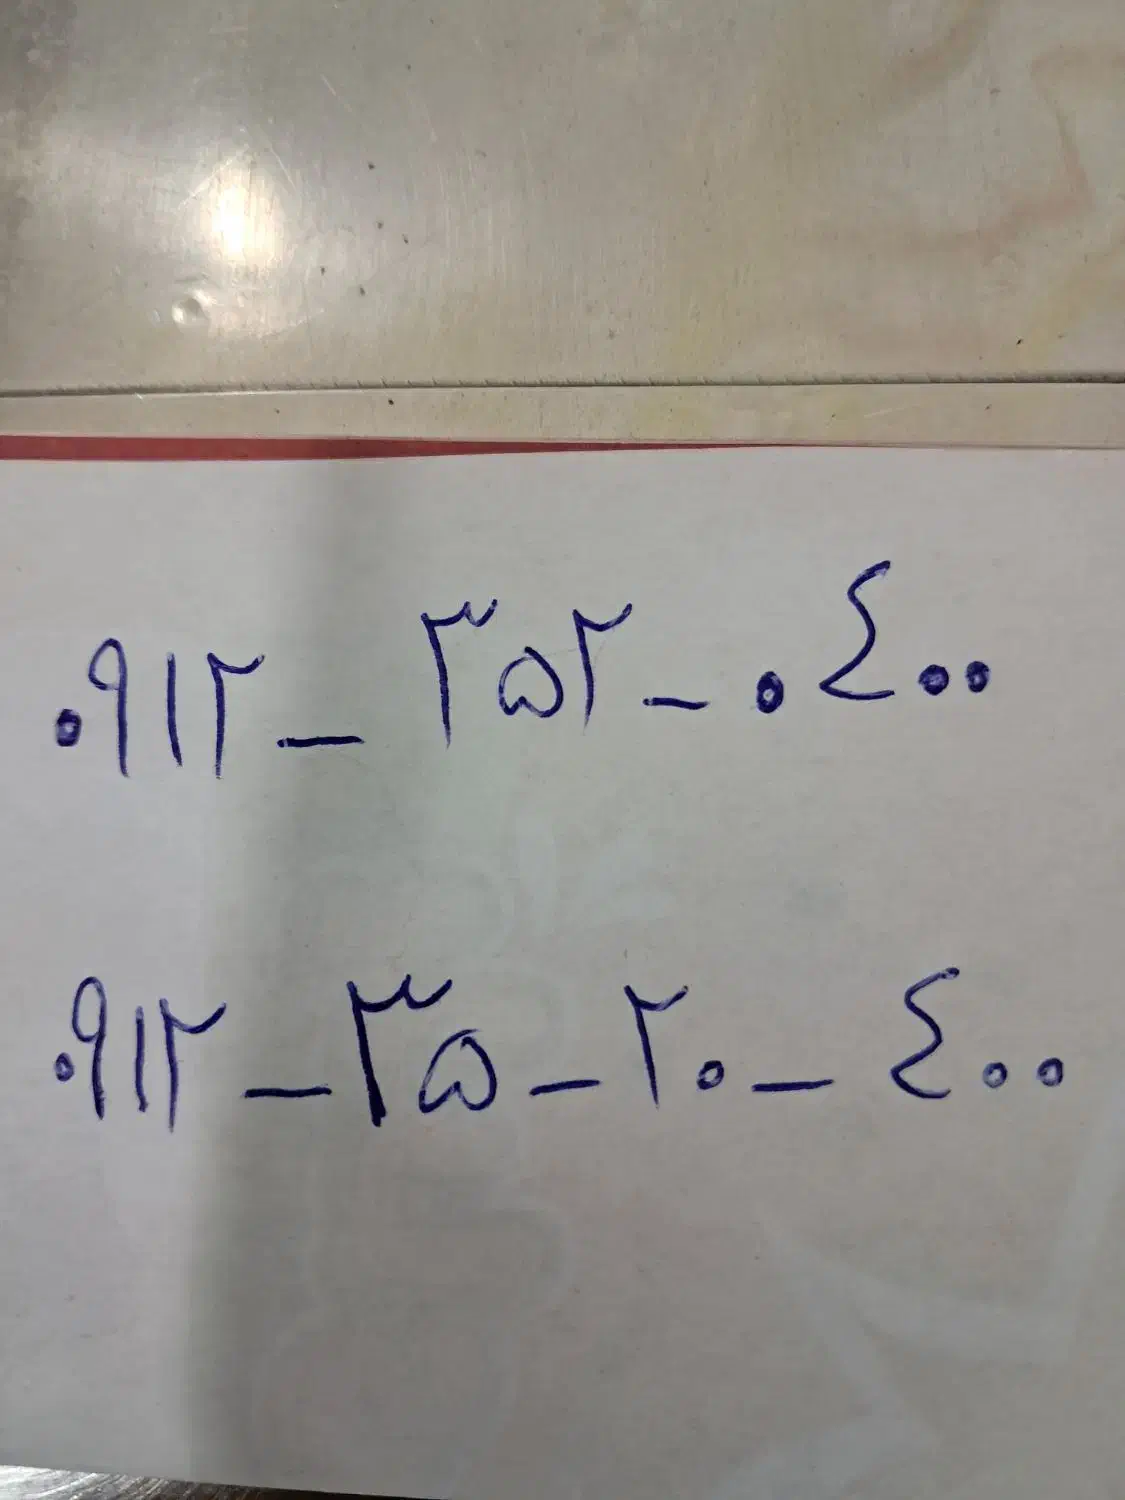 ۰۹۱۲ - ۳۵۲ - ۰٤۰۰
۰۹۱۲ - ۳۵ - ۲۰ - ٤۰۰